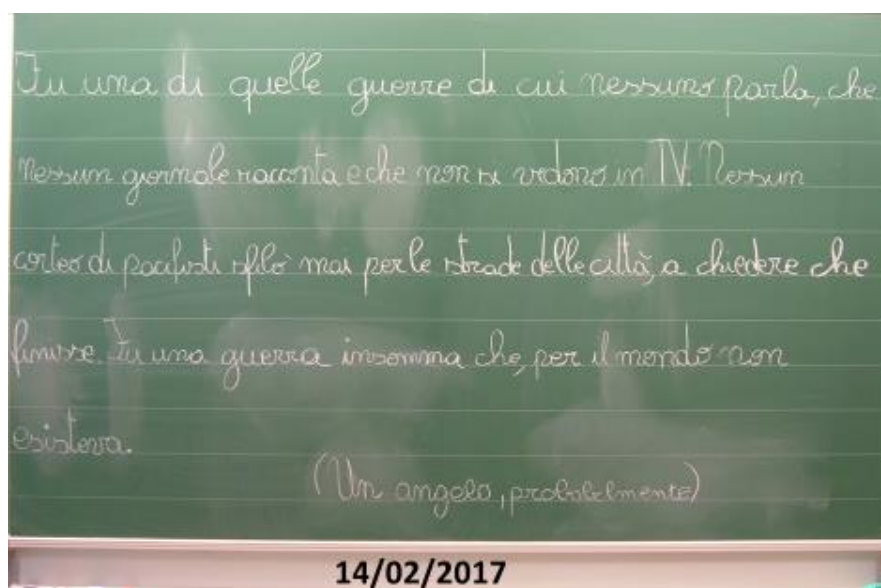 Fu una di quelle guerre di cui nessuno parla, che
nessun giornale racconta e che non si vedono in TV. Nessun
corteo di pacifisti sfilò mai per le strade delle città, a chiedere che
finisse. Fu una guerra insomma che, per il mondo non
esisteva.
(Un angelo, probabilmente)
14/02/2017